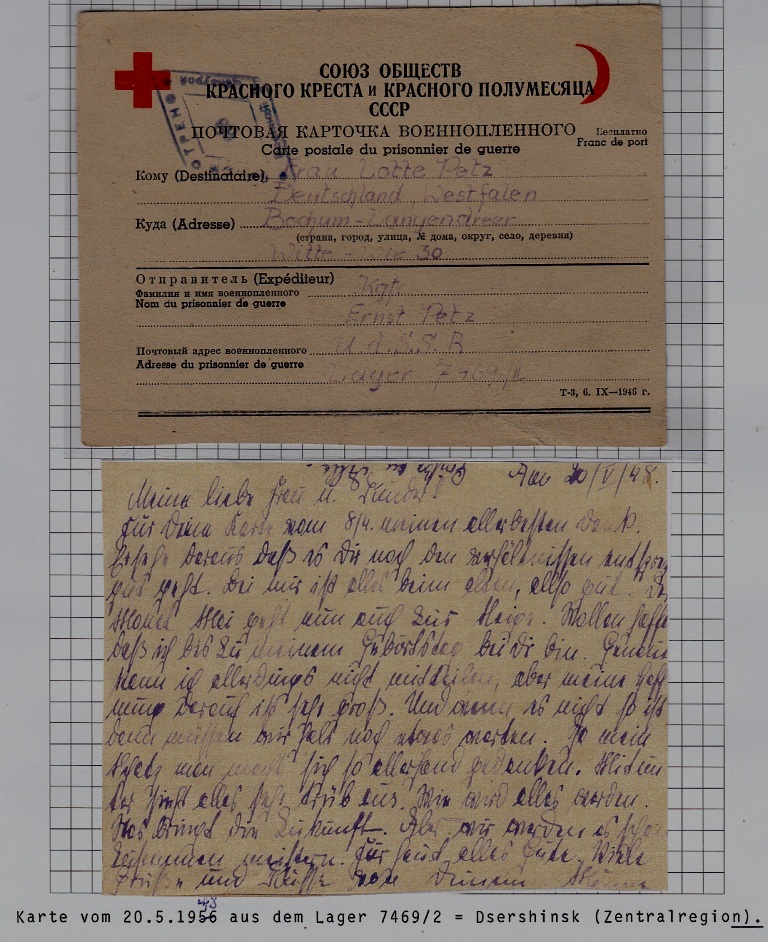 СОЮЗ ОБЩЕСТВ
КРАСНОГО КРЕСТА и КРАСНОГО ПОЛУМЕСЯЦА
СССР
ПОЧТОВАЯ КАРТОЧКА ВОЕННОПЛЕННОГО
Бесплатно
Carte postale du prisonnier de guerre
Franc de port
Кому (Destinataire) Frau Lotte Petz
Deutschland, Westfalen
Куда (Adresse) Bochum-Langendreer
(страна, город, улица, № дома, округ, село, деревня)
30
Отправитель (Expéditeur)
Фамилия и имя военнопленного Kgf.
Nom du prisonnier de guerre
Ernst Petz
Почтовый адрес военнопленного U.d.S.S.R
Adresse du prisonnier de guerre Lager 7469/II
Т-3, 6. IX—1946 г.
20/V/48.
Meine liebe Frau u. Kinder!
Für Deine Karte vom 8/4. meinen allerbesten Dank.
Ersehe daraus daß es Dir noch den Verhältnissen
gut geht. Bei mir ist alles beim alten, also gut.
Monat Mai geht nun auch zur Neige. Wollen
daß ich bis zu meinem Geburtstag bei Dir bin.
kann ich allerdings nicht mitteilen, aber meine Hoff
nung darauf ist sehr groß. Und wenn es nicht so ist
dann müssen wir halt noch etwas warten. Ja mein
Schatz man macht sich so allerhand Gedanken.
sieht alles sehr trüb aus. Wie wird alles werden.
Was bringt die Zukunft. Aber wir werden es schon
zusammen meistern. Für heut alles Gute. Viele
Grüße und Küsse von Deinem
Karte vom 20.5.1956 aus dem Lager 7469/2 = Dsershinsk (Zentralregion).
48